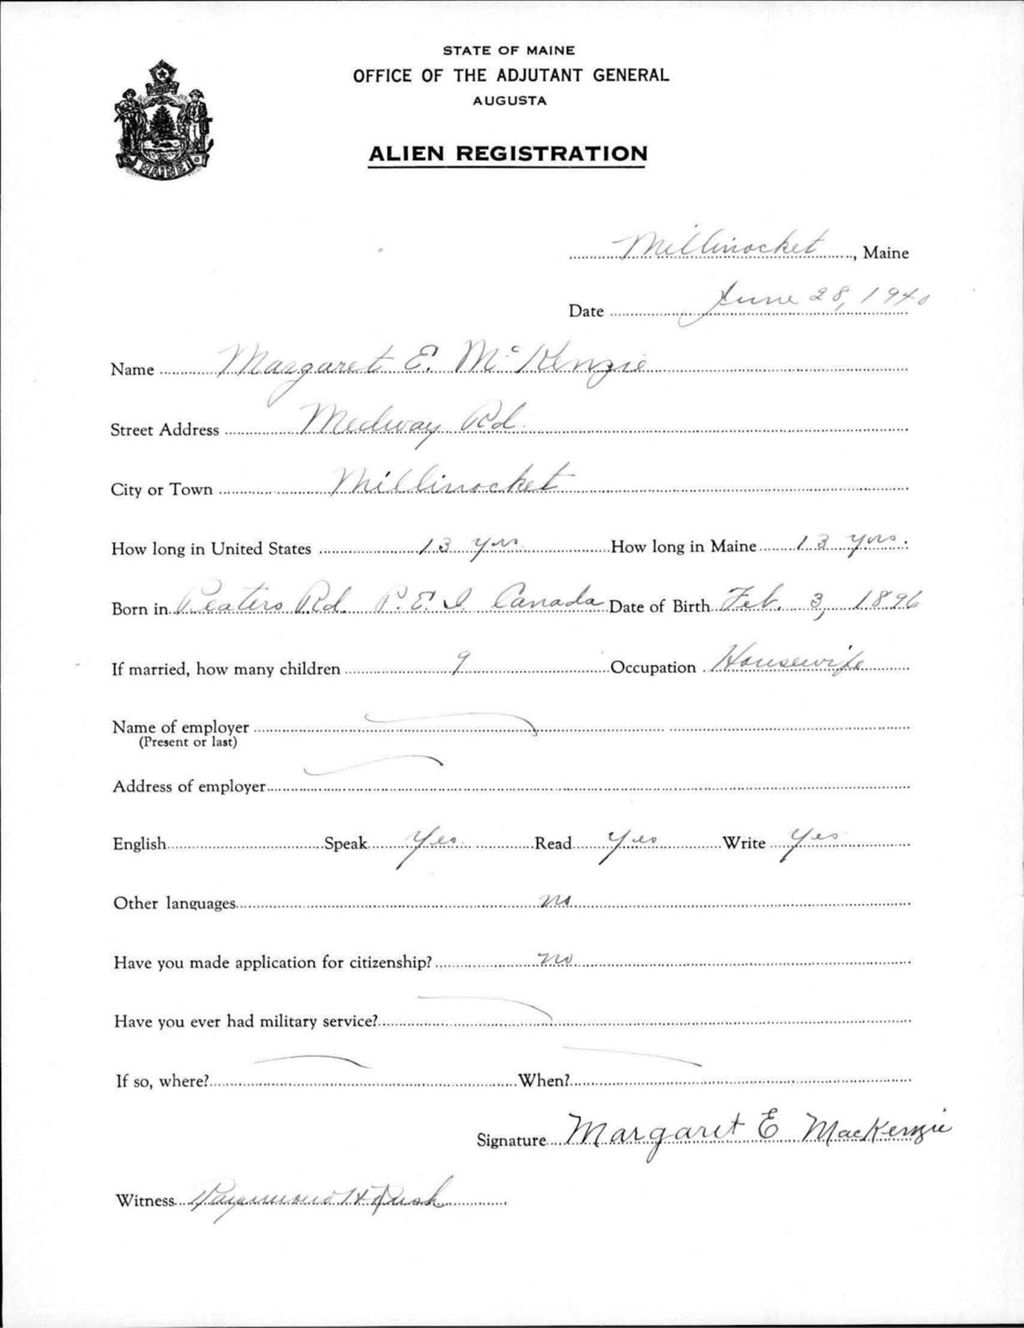 STATE OF MAINE
OFFICE OF THE ADJUTANT GENERAL
AUGUSTA
ALIEN REGISTRATION
MAINE
Millinocket, Maine
Date June 28, 1940
Name Margaret E. McKenzie
Street Address Medway Rd.
City or Town Millinocket
How long in United States 13 yrs How long in Maine 13 yrs.
Born in Peaters Rd. P.E.I. Canada Date of Birth Feb. 3, 1896
If married, how many children 9 Occupation Housewife
Name of employer
(Present or last)
Address of employer
English Speak Yes. Read Yes Write Yes
Other languages no
Have you made application for citizenship? no
Have you ever had military service?
If so, where? When?
Signature Margaret E MacKenzie
Witness Raymond H Rush